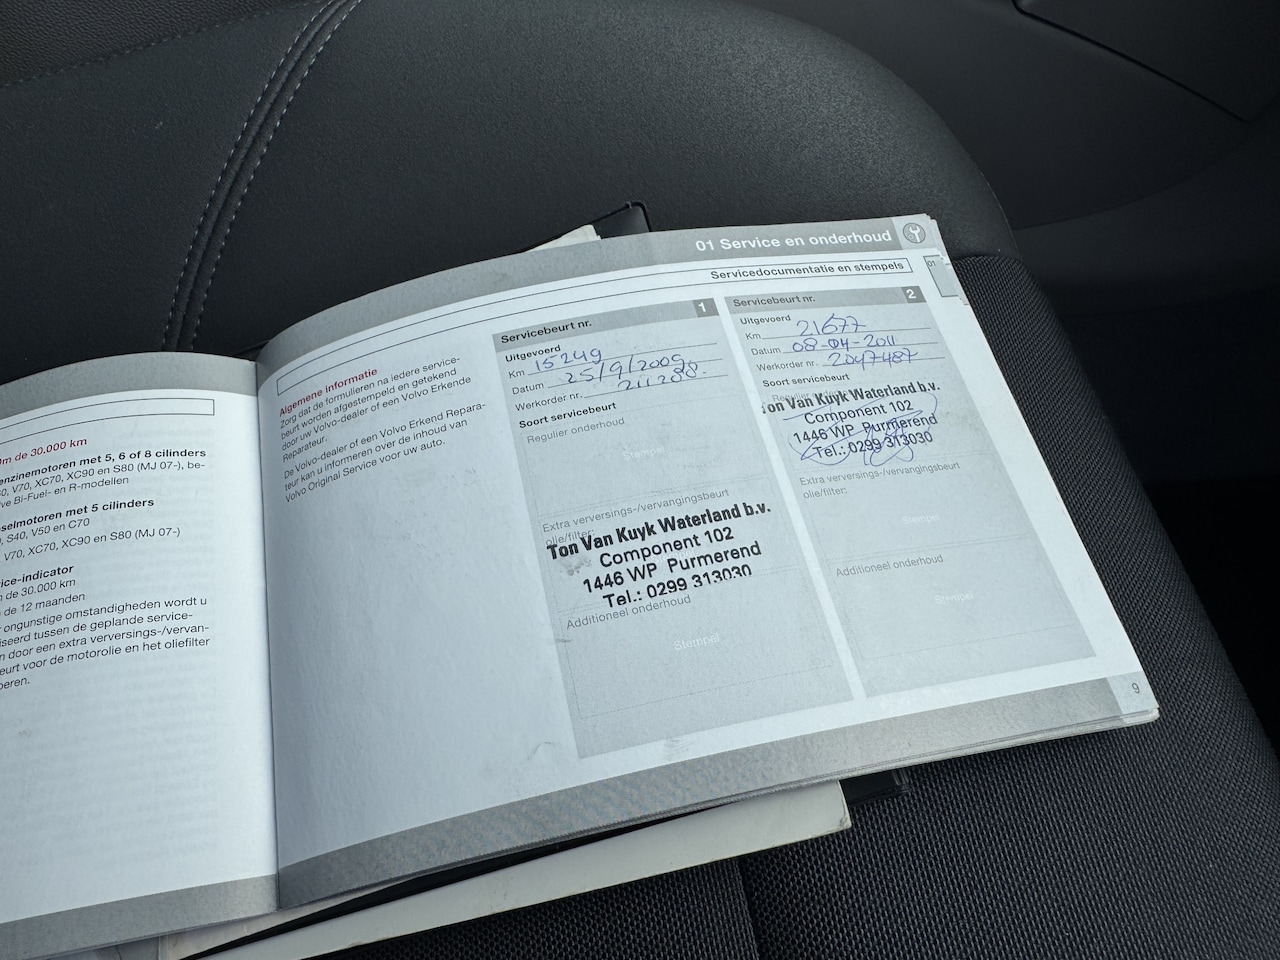 0m de 30.000 km
enzinemotoren met 5, 6 of 8 cilinders
0, V70, XC70, XC90 en S80 (MJ 07-), be-
ve Bi-Fuel- en R-modellen
selmotoren met 5 cilinders
, S40, V50 en C70
V70, XC70, XC90 en S80 (MJ 07-)
ice-indicator
n de 30.000 km
de 12 maanden
ongunstige omstandigheden wordt u
iseerd tussen de geplande service-
n door een extra verversings-/vervan-
eurt voor de motorolie en het oliefilter
oeren.
01 Service en onderhoud
01
Servicedocumentatie en stempels
Algemene informatie
Zorg dat de formulieren na iedere service-
beurt worden afgestempeld en getekend
door uw Volvo-dealer of een Volvo Erkende
Reparateur.
De Volvo-dealer of een Volvo Erkend Repara-
teur kan u informeren over de inhoud van
Volvo Original Service voor uw auto.
Servicebeurt nr. 1
Uitgevoerd
Km 15249
Datum 25/9/2009
Werkorder nr. 211208.
Soort servicebeurt
Regulier onderhoud
Stempel
Extra verversings-/vervangingsbeurt
olie/filter:
Ton Van Kuyk Waterland b.v.
Component 102
1446 WP Purmerend
Tel.: 0299 313030
Additioneel onderhoud
Stempel
Servicebeurt nr. 2
Uitgevoerd
Km 21677
Datum 08-04-2011
Werkorder nr. 2047487
Soort servicebeurt
Regulier
Ton Van Kuyk Waterland b.v.
Component 102
1446 WP Purmerend
Tel.: 0299 313030
Extra verversings-/vervangingsbeurt
olie/filter:
Stempel
Additioneel onderhoud
Stempel
9